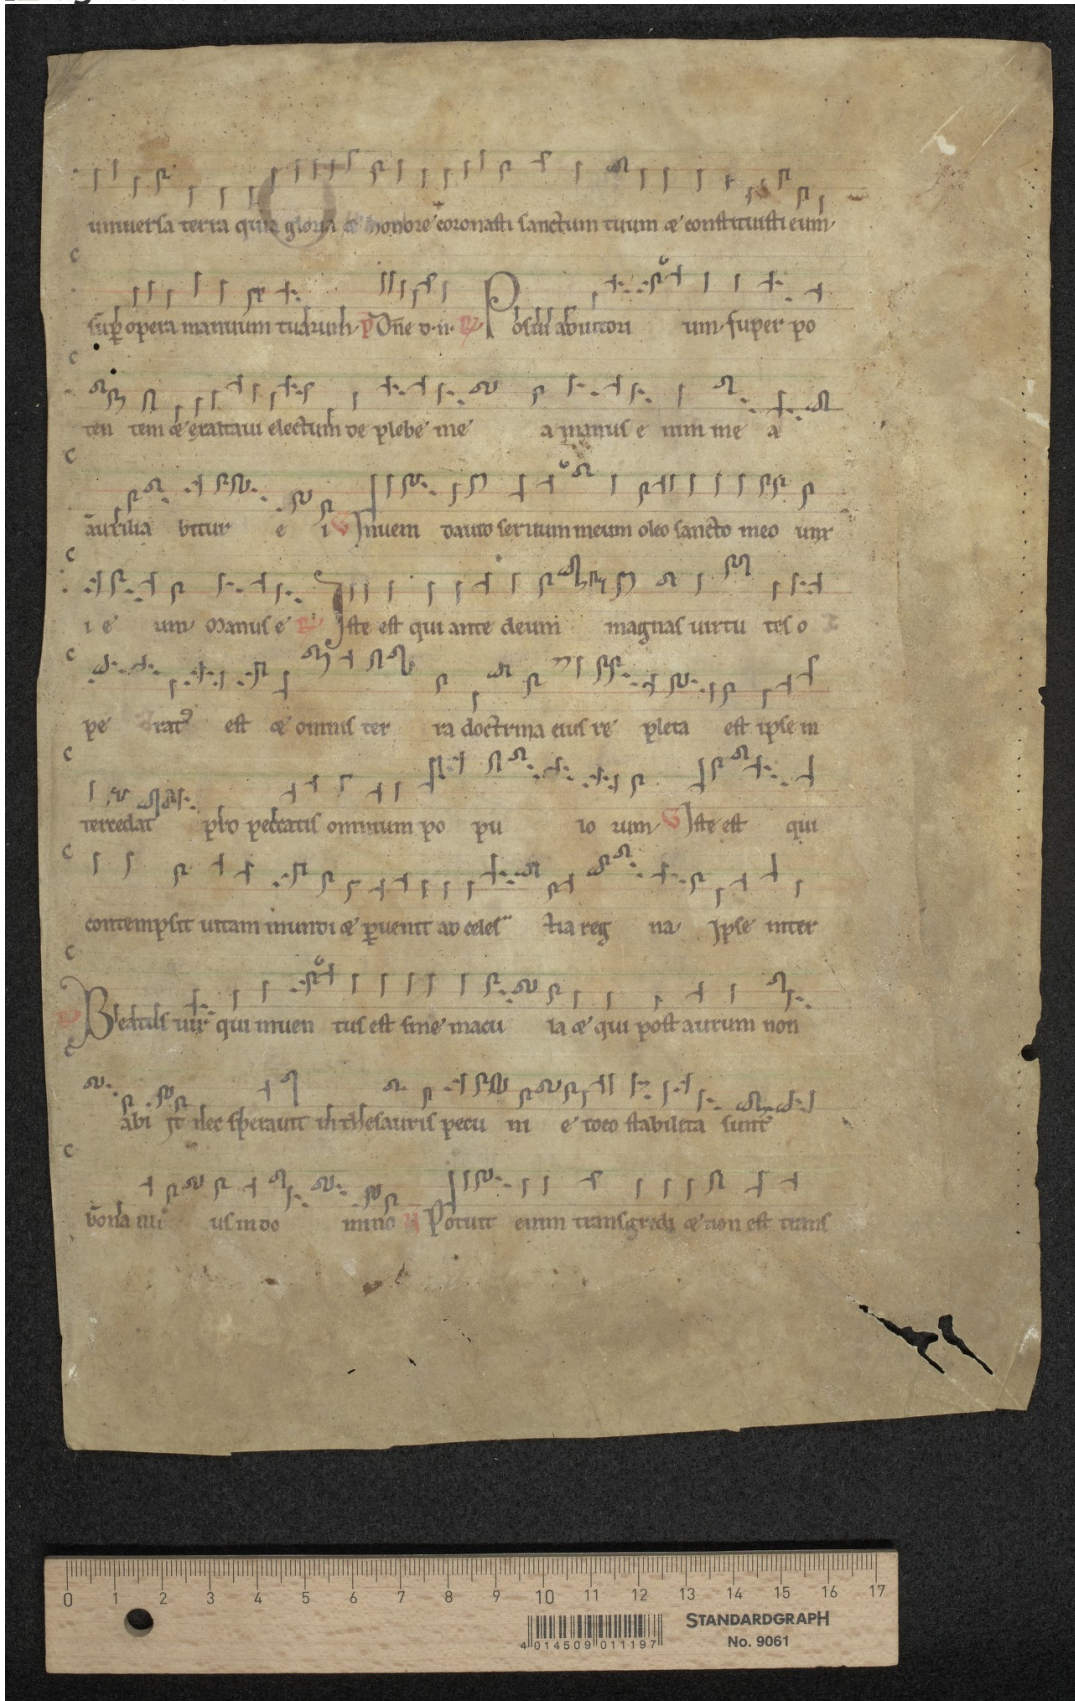 uniuersa terra quia gloria & honore coronasti sanctum tuum & constituisti eum
sup̄ opera manuum tuarum. p̄ Dn̄e d. n. R̄ Posui adiutori um super po
ten tem & exaltaui electum de plebe me a manus e nim me a
auxilia bitur e i V Inueni dauid seruum meum oleo sancto meo unx
i e um Manus e R̄ Iste est qui ante deum magnas uirtu tes o
pe ratꝰ est & omnis ter ra doctrina eius re pleta est ipse in
tercedat pro peccatis omnium po pu lo rum V Iste est qui
contempsit uitam mundi & p̄uenit ad celes tia reg na Ipse inter
R̄ Beatus uir qui inuen tus est sine macu la & qui post aurum non
abi it nec sperauit in thesauris pecu ni e ideo stabilita sunt
bona illi us in do mino V Potuit enim transgredi & non est trans
0 1 2 3 4 5 6 7 8 9 10 11 12 13 14 15 16 17
STANDARDGRAPH
No. 9061
4 014509 011197